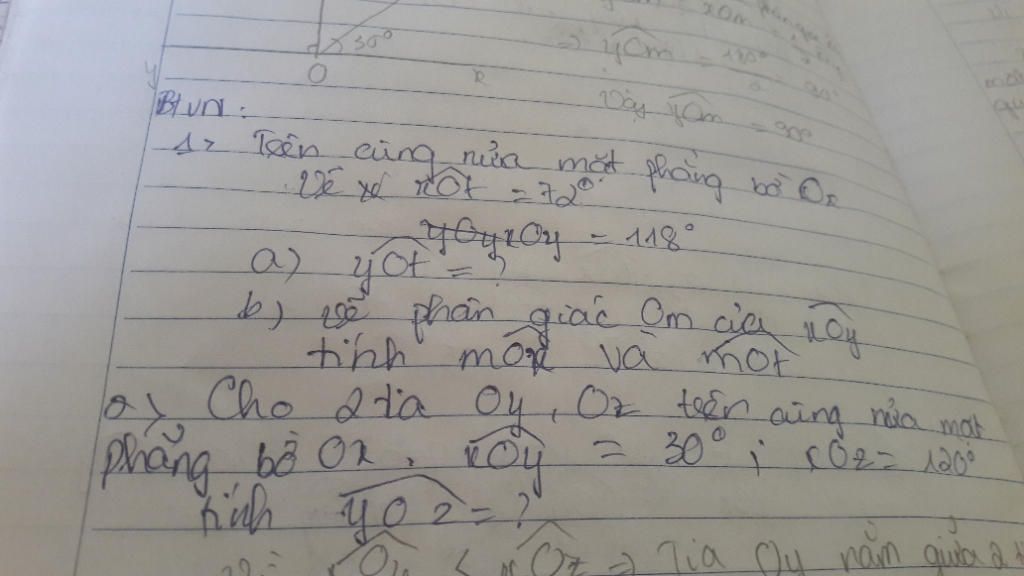 xOm
30°
⇒ yOm = 180°
y O x
Vậy yOm = 90°
Btvn:
1> Trên cùng nửa mặt phẳng bờ Ox
Vẽ xOt = 72°
xOy = 118°
a) yOt = ?
b) vẽ phân giác Om của xOy
tính mOx và mOt
a> Cho 2 tia Oy, Oz trên cùng nửa mặt
phẳng bờ Ox. xOy = 30° ; xOz = 120°
tính yOz = ?
Vì xOy < xOz ⇒ Tia Oy nằm giữa 2